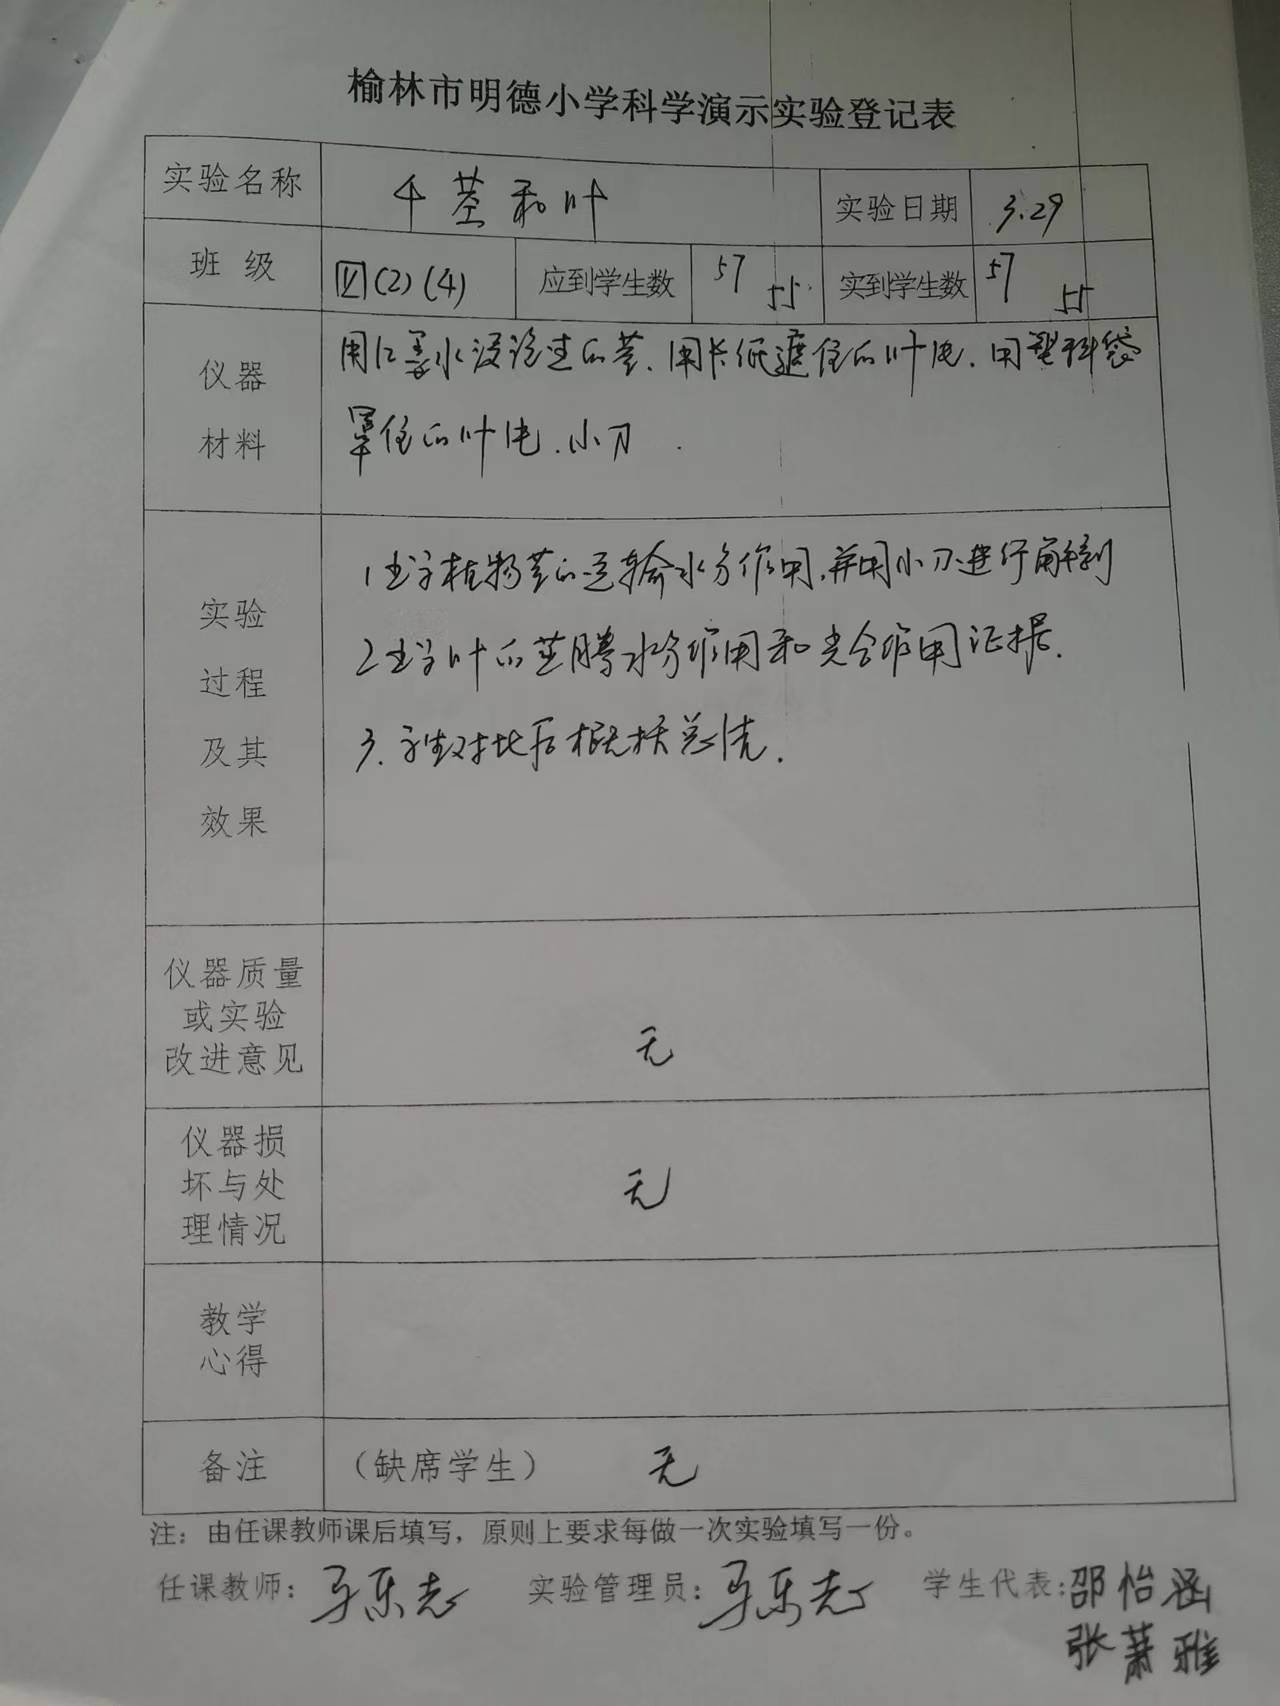 榆林市明德小学科学演示实验登记表
实验名称 4 茎和叶 实验日期 3.29
班级 四(2)(4) 应到学生数 57 55 实到学生数 57 55
仪器材料 用红墨水浸泡过的茎.用卡纸遮住的叶片.用塑料袋
罩住的叶片.小刀.
实验过程及其效果
1 植物茎的运输水分作用,并用小刀进行解剖
2 叶的蒸腾水分作用和光合作用证据.
3. 对比后概括总结.
仪器质量或实验改进意见 无
仪器损坏与处理情况 无
教学心得
备注 (缺席学生) 无
注:由任课教师课后填写,原则上要求每做一次实验填写一份。
任课教师: 实验管理员: 学生代表:邵怡涵
张萧雅